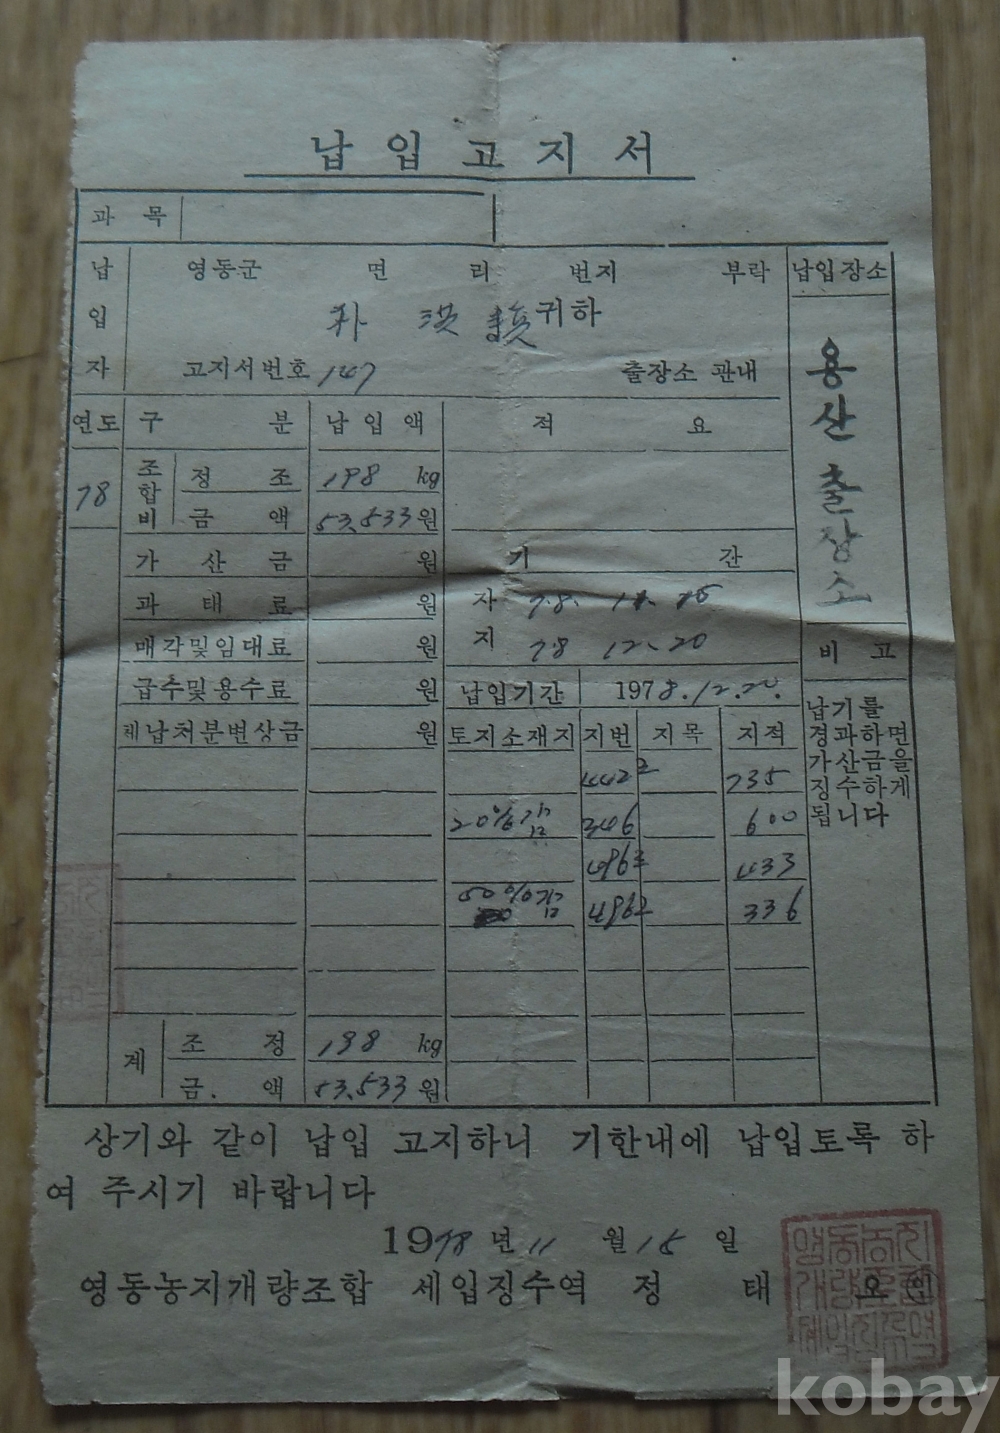 납입고지서
과목
납입자 영동군 면 리 번지 부락 납입장소
朴 洪 귀하
고지서번호 147 출장소 관내
용산출장소
연도 구분 납입액 적요
78 조합비 정조 198 kg
금액 53,533원
가산금 원 기간
과태료 원 자 78. 11. 15
매각및임대료 원 지 78 12. 20
비고
급수및용수료 원 납입기간 1978.12.20.
납기를
경과하면
가산금을
징수하게
됩니다
체납처분변상금 원 토지소재지 지번 지목 지적
442 2 735
20%감 346 600
486 3 433
50%감 486 2 336
계 조정 198 kg
금.액 53,533원
상기와 같이 납입 고지하니 기한내에 납입토록 하
여 주시기 바랍니다
1978년 11월 15일
영동농지개량조합 세입징수역 정태요 인
영동농지개량조합세입징수역
kobay